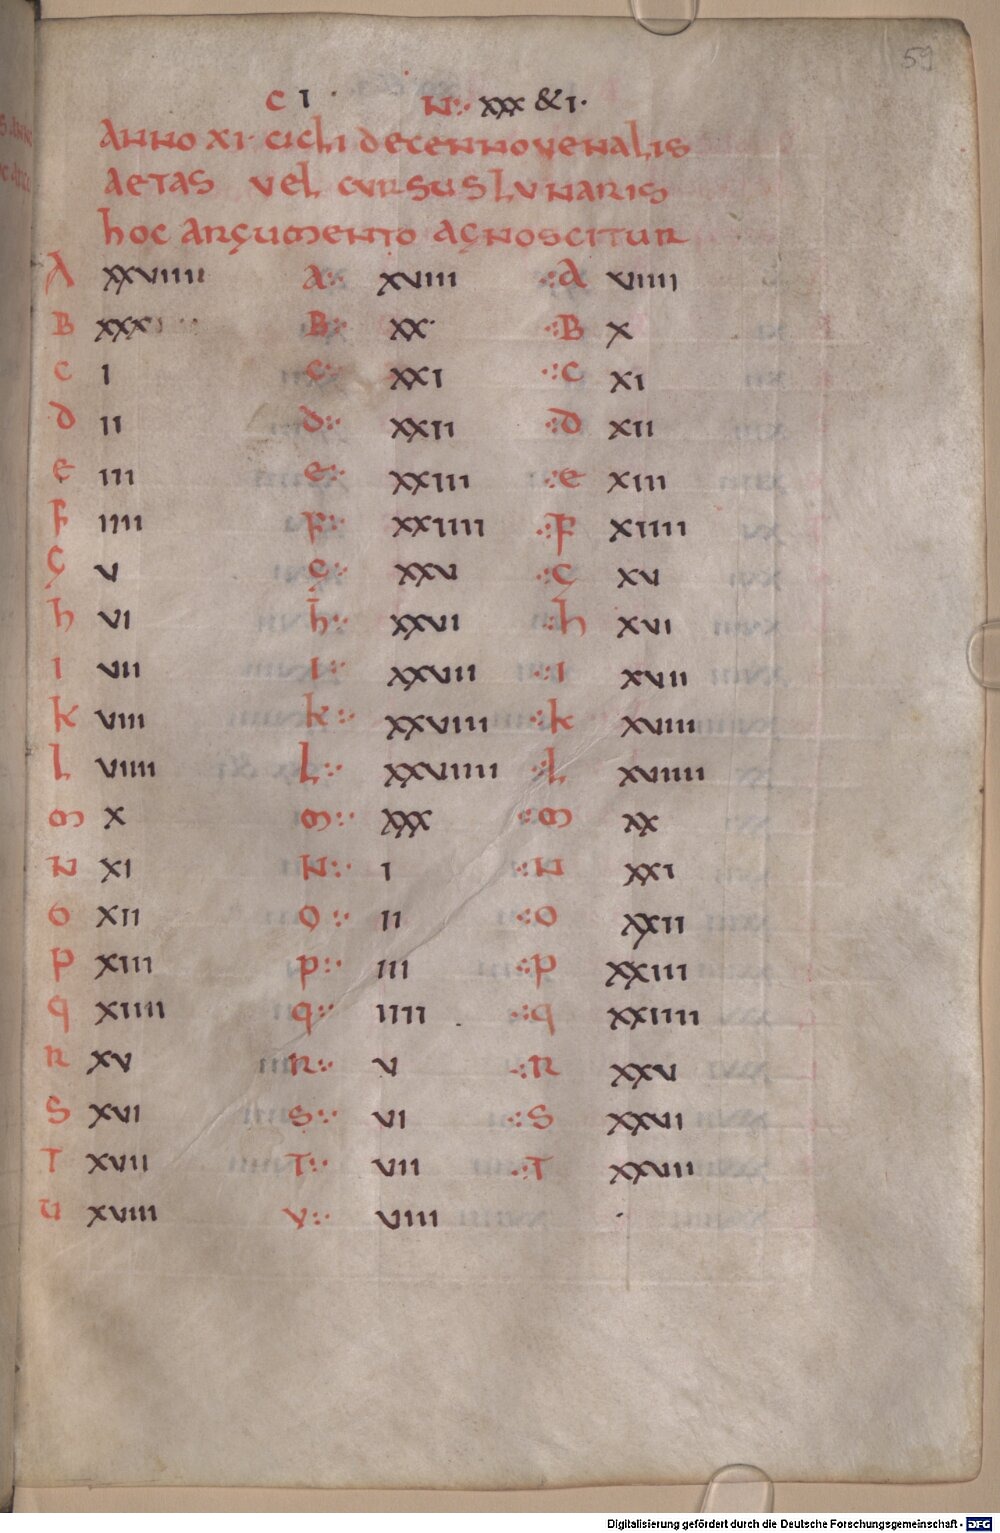 59
C I · N:· XXX & I·
ANNO XI· CICLI DECENNOVENALIS
AETAS VEL CURSUS LUNARIS
hOC ARGUMENTO AGNOSCITUR
A XXVIIII a:· XVIII ·:A VIIII
B XXX B:· XX· ·:B X
C I C:· XXI ·:C XI
d II d:· XXII ·:d XII
e III e:· XXIII ·:e XIII
F IIII F:· XXIIII ·:F XIIII
G V G:· XXV ·:G XV
h VI h:· XXVI ·:h XVI
I VII I:· XXVII ·:I XVII
k VIII k:· XXVIII ·:k XVIII
L VIIII L:· XXVIIII ·:L XVIIII
M X M:· XXX ·:M XX
N XI N:· I ·:N XXI
O XII O:· II ·:O XXII
P XIII P:· III ·:P XXIII
q XIIII q:· IIII ·:q XXIIII
R XV R:· V ·:R XXV
S XVI S:· VI ·:S XXVI
T XVII T:· VII ·:T XXVII
U XVIII V:· VIII
Digitalisierung gefördert durch die Deutsche Forschungsgemeinschaft - DFG